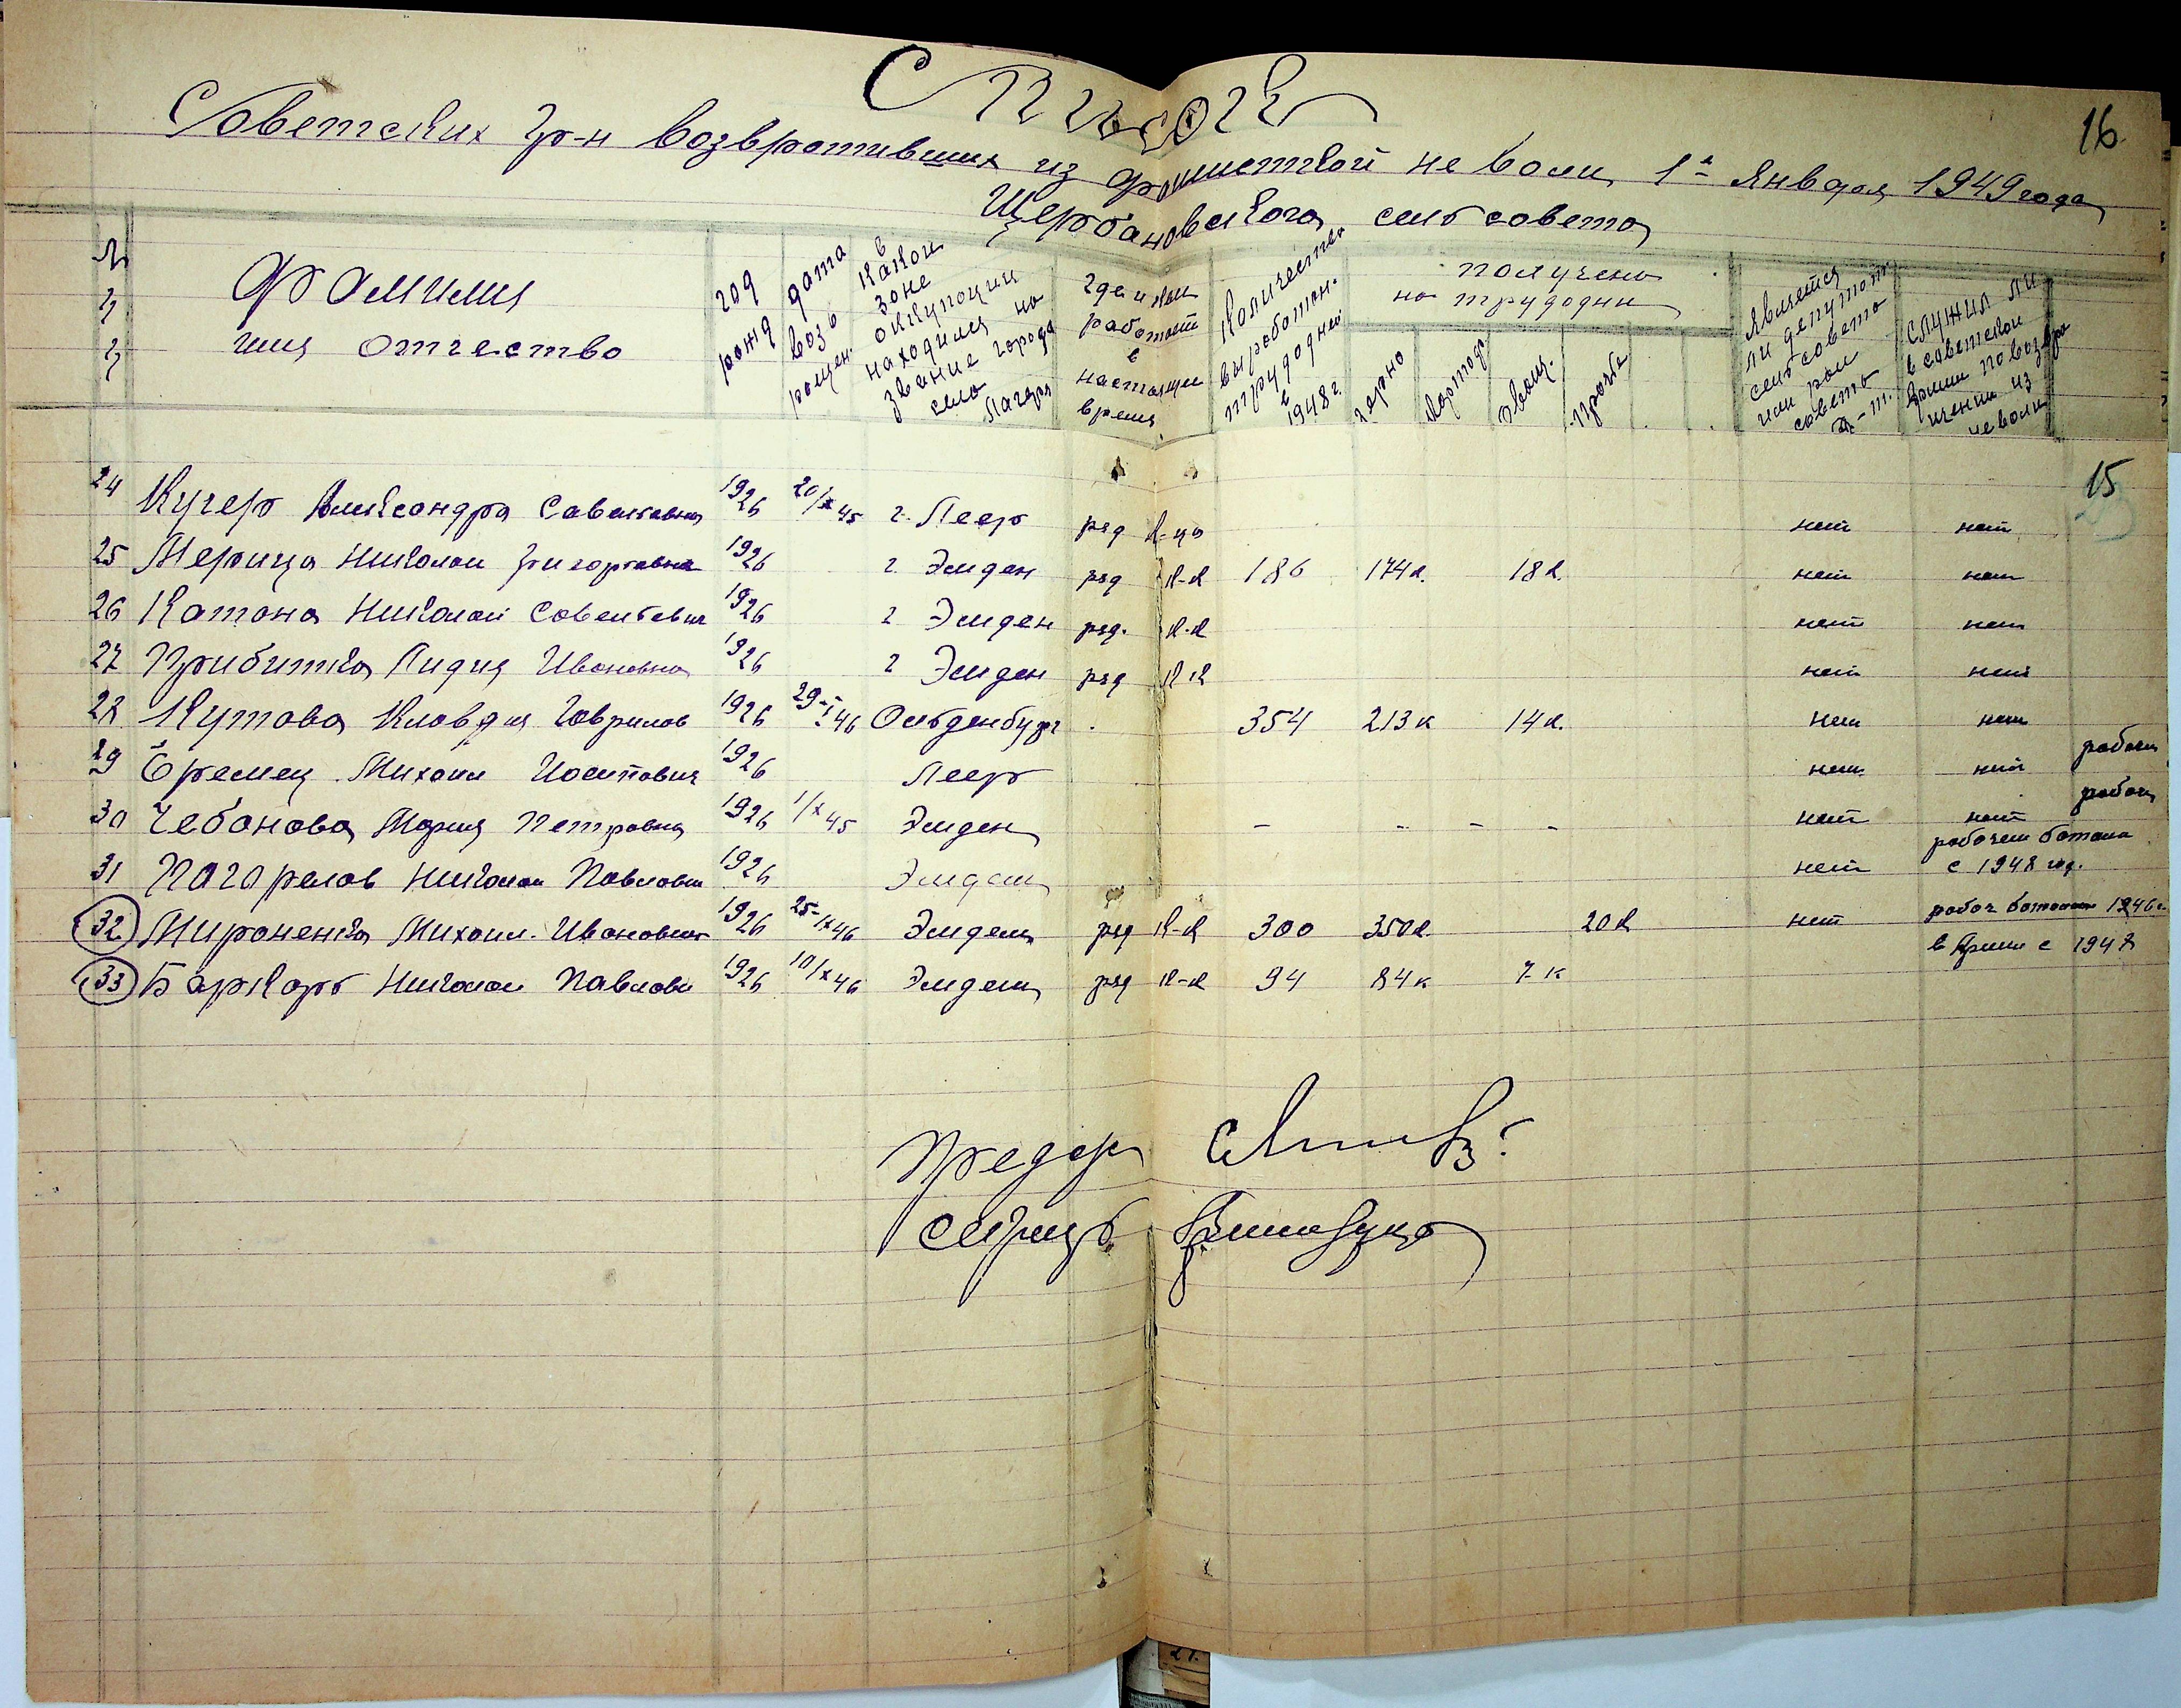 Список
16
Советских гр-н возвротивших из фошистской не воли 1-е Января 1949 года
Щербановского сельсовета
№ п п
Фомилия имя отчество
год рожд
дата возв рощен.
в какой зоне оккупоции находился но звание города село лагеря
где и кем работает в настоящее время
количество выработан. трудодней в 1948 г.
получено на трудодни
зерно
картоф
овощ.
проч
является ли депутот. сельсовето или рай совето д-т.
служил ли в советской Армии по возвра щении из неволи
15
24 Кучер Александра Савельевна 1926 20/IX 45 г. Леер ряд к-ца нет нет
25 Мерица Николай Григорьевич 1926 г Эмден ряд к-к 186 174к. 18к. нет нет
26 Катона Николай Совельевич 1926 г Эмден ряд. к-к нет нет
27 Прибитко Лидия Ивоновна 1926 г Эмден ряд к к нет нет
28 Кутова Клавдия Говрилов 1926 29-I 46 Ольденбург 354 213к 14к. нет нет
29 Еремец Михоил Иосипович 1926 Леер нет нет робоч
30 Чебонова Мария Петровна 1926 1/X 45 Эмден – – – – нет нет робоч
31 Погорелов Николой Повлович 1926 Эмден нет робочемботоле с 1948 год.
32 Мироненко Михоил Ивонович 1926 25-IX 46 Эмден ряд к-к 300 350к. 20к нет робоч ботольон 1946г.
33 Баркарь Николой Повлови 1926 10/X 46 Эмден ряд к-к 94 84к 7к в Армии с 1947
Предер
секрет